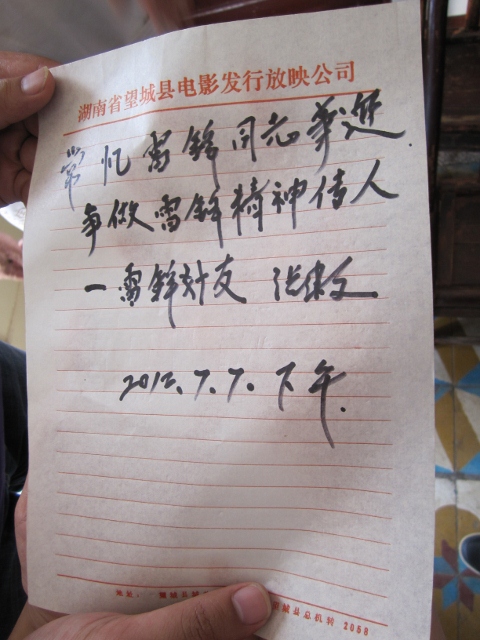 湖南省望城县电影发行放映公司
常忆雷锋同志
争做雷锋精神传人
一雷锋友
2012.7.7.下午.
地址: 望城县城 望城县总机转 2058